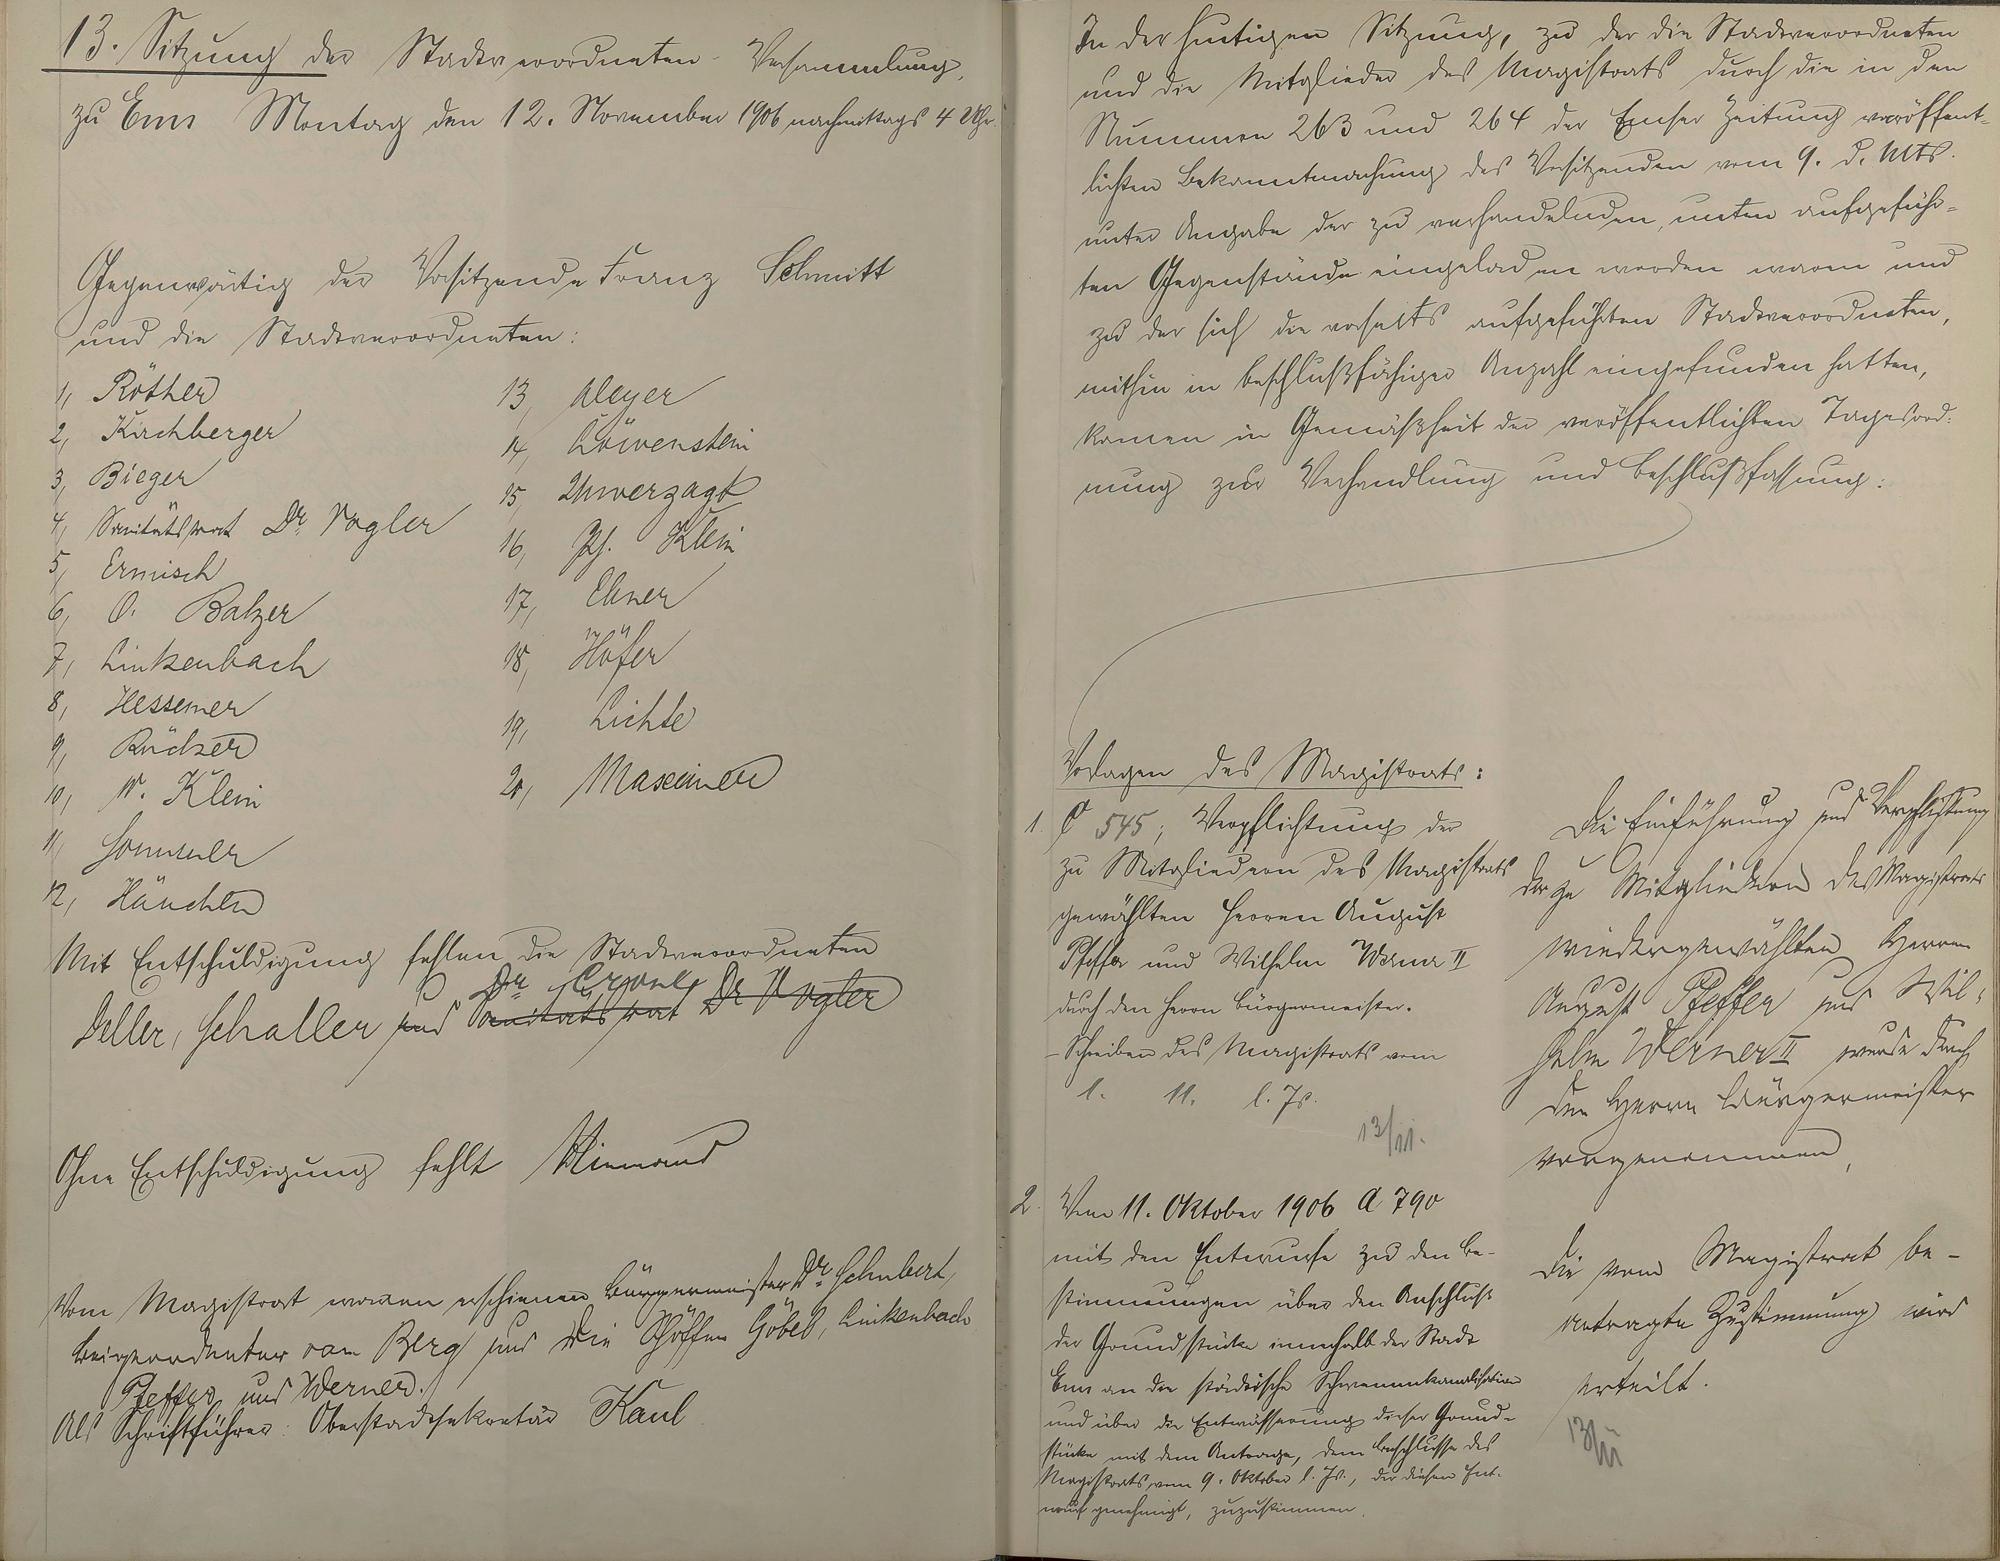 13. Sitzung der Stadtverordneten-Versammlung,
zu Ems Montag den 12. November 1906 nachmittags 4 Uhr.
Gegenwärtig der Vorsitzende Franz Schmitt
und die Stadtverordneten:
1, Röther
2, Kirchberger
3, Bieger
4, Sanitätsrat Dr. Vogler
5, Ermisch
6, O. Balzer
7, Linkenbach
8, Hessemer
9, Rücker
10, W. Klein
11, Sommer
12, Hänchen
13, Meyer
14, Löwenstein
15, Unverzagt
16, Ph. Klein
17, Ebner
18, Höfer
19, Lichte
20, Maxeiner
Mit Entschuldigung fehlen die Stadtverordneten
Dr.
Deller, Schaller und Sanitätsrat Dr Vogler
Ohne Entschuldigung fehlt Niemand
Vom Magistrat waren erschienen Bürgermeister Dr. Schubert,
Beigeordneter vom Berg und die Schöffen Göbel, Linkenbach
Pfeffer und Werner.
Als Schriftführer: Oberstadtsekretär Kaul
In der heutigen Sitzung, zu der die Stadtverordneten
und die Mitglieder des Magistrats durch die in den
Nummern 263 und 264 der Emser Zeitung veröffent-
lichten Bekanntmachung des Vorsitzenden vom 9. d. Mts.
unter Angabe der zu verhandelnden, unten aufgeführ-
ten Gegenstände eingeladen worden waren und
zu der sich die vorseits aufgeführten Stadtverordneten,
mithin in beschlußfähiger Anzahl eingefunden hatten,
kamen in Gemäßheit der veröffentlichten Tagesord-
nung zur Verhandlung und Beschlußfassung:
Vorlagen des Magistrats:
1. C 545; Verpflichtung der
zu Mitgliedern des Magistrats
gewählten Herren August
Pfeffer und Wilhelm Werner II
durch den Herrn Bürgermeister.
- Schreiben des Magistrats vom
1. 11. l. Js.
13/11.
Die Einführung und Verpflichtung
der zu Mitgliedern des Magistrats
wiedergewählten Herren
August Pfeffer und Wil-
helm Werner II wurde durch
den Herrn Bürgermeister
vorgenommen,
2. Vom 11. Oktober 1906 A 790
mit den Entwurfe zu den Be-
stimmungen über den Anschluß
der Grundstücke innerhalb der Stadt
Ems an die städtische Schwemmkanalisation
und über die Entwässerung dieser Grund-
stücke mit dem Antrage, dem Beschlusse des
Magistrats vom 9. Oktober l. Js., der diesen Ent-
wurf genehmigt, zuzustimmen.
Die vom Magistrat be-
antragte Zustimmung wird
erteilt.
13/11